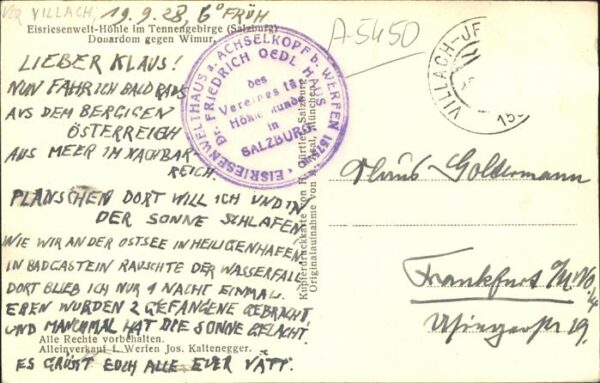 VOR VILLACH, 19.9.28, 6° FRÜH
Eisriesenwelt-Höhle im Tennengebirge (Salzburg)
Donardom gegen Wimur.
LIEBER KLAUS!
NUN FAHR ICH BALD RAUS
AUS DEM BERGIGEN
ÖSTERREICH
AUS MEER IM NACHBAR-
REICH.
PLANSCHEN DORT WILL ICH UND IN
DER SONNE SCHLAFEN
WIE WIR AN DER OSTSEE IN HEILIGENHAFEN.
IN BADGASTEIN RAUSCHTE DER WASSERFALL
DORT BLIEB ICH NUR 1 NACHT EINMAL.
EBEN WURDEN 2 GEFANGENE GEBRACHT
UND MANCHMAL HAT DIE SONNE GELACHT.
Alle Rechte vorbehalten.
Alleinverkauf f. Werfen Jos. Kaltenegger.
ES GRÜßT EUCH ALLE EUER VATT.
EISRIESENWELTHAUS a. ACHSELKOPF b. WERFEN 1575
Dr. FRIEDRICH OEDL HAUS
des
Vereines für
Höhlenkunde
in
SALZBURG
Kupferdruckkarte von F. Würthle, Salzburg
Originalaufnahme von
München
A-5450
VILLACH
Klaus Goldermann
Frankfurt a/M.
19.